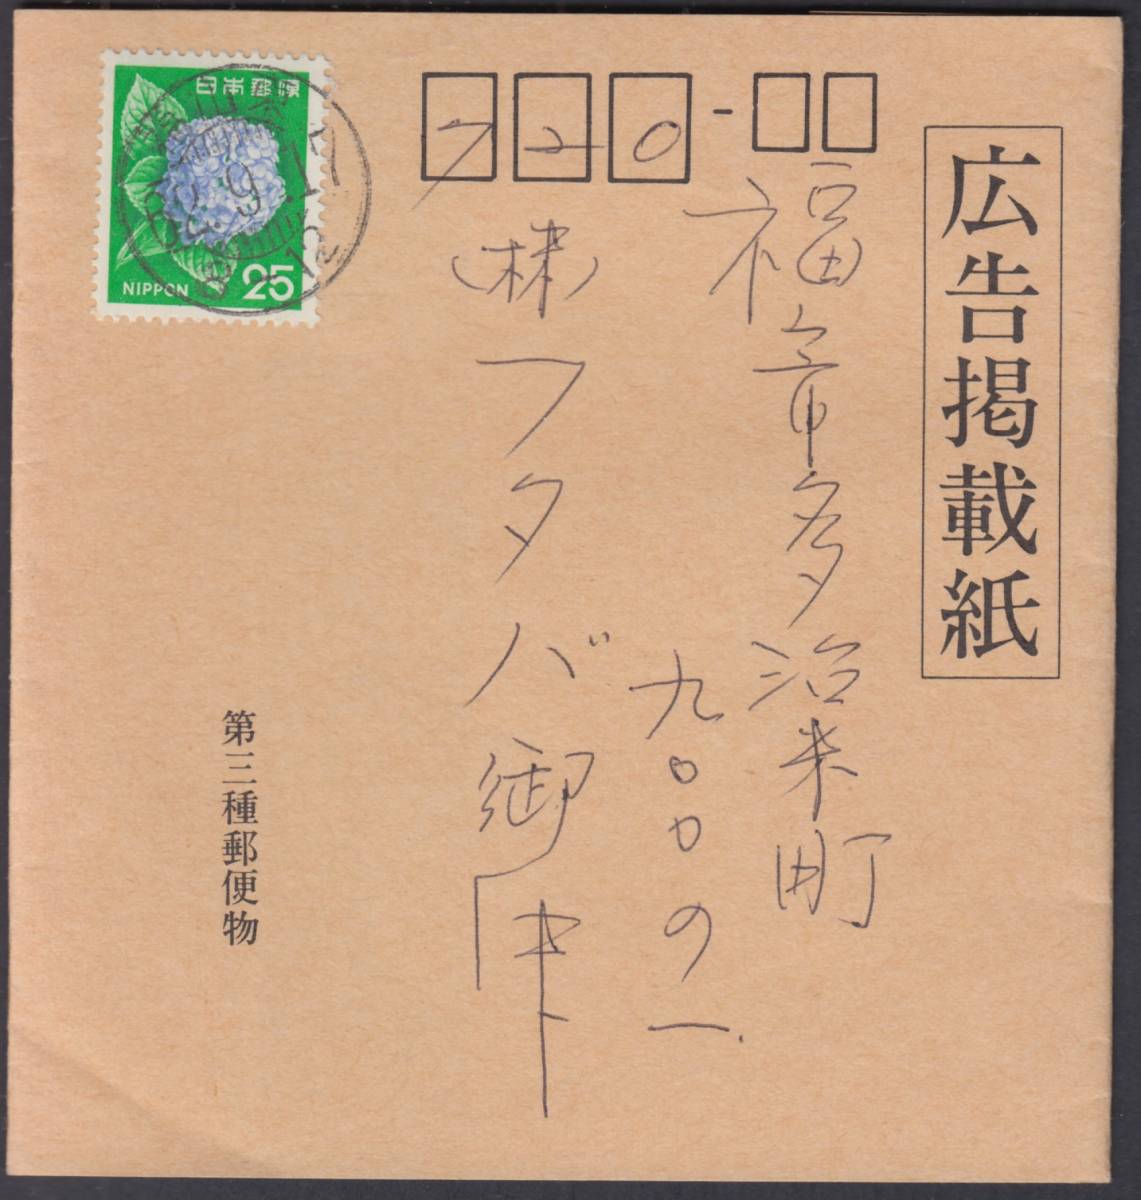 日本郵便
NIPPON 25
720-
広告掲載紙
福山市多治米町
九〇〇の一
(株)フタバ御中
第三種郵便物